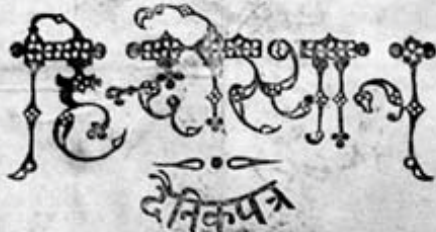 हिन्दोस्थान
दैनिकपत्र